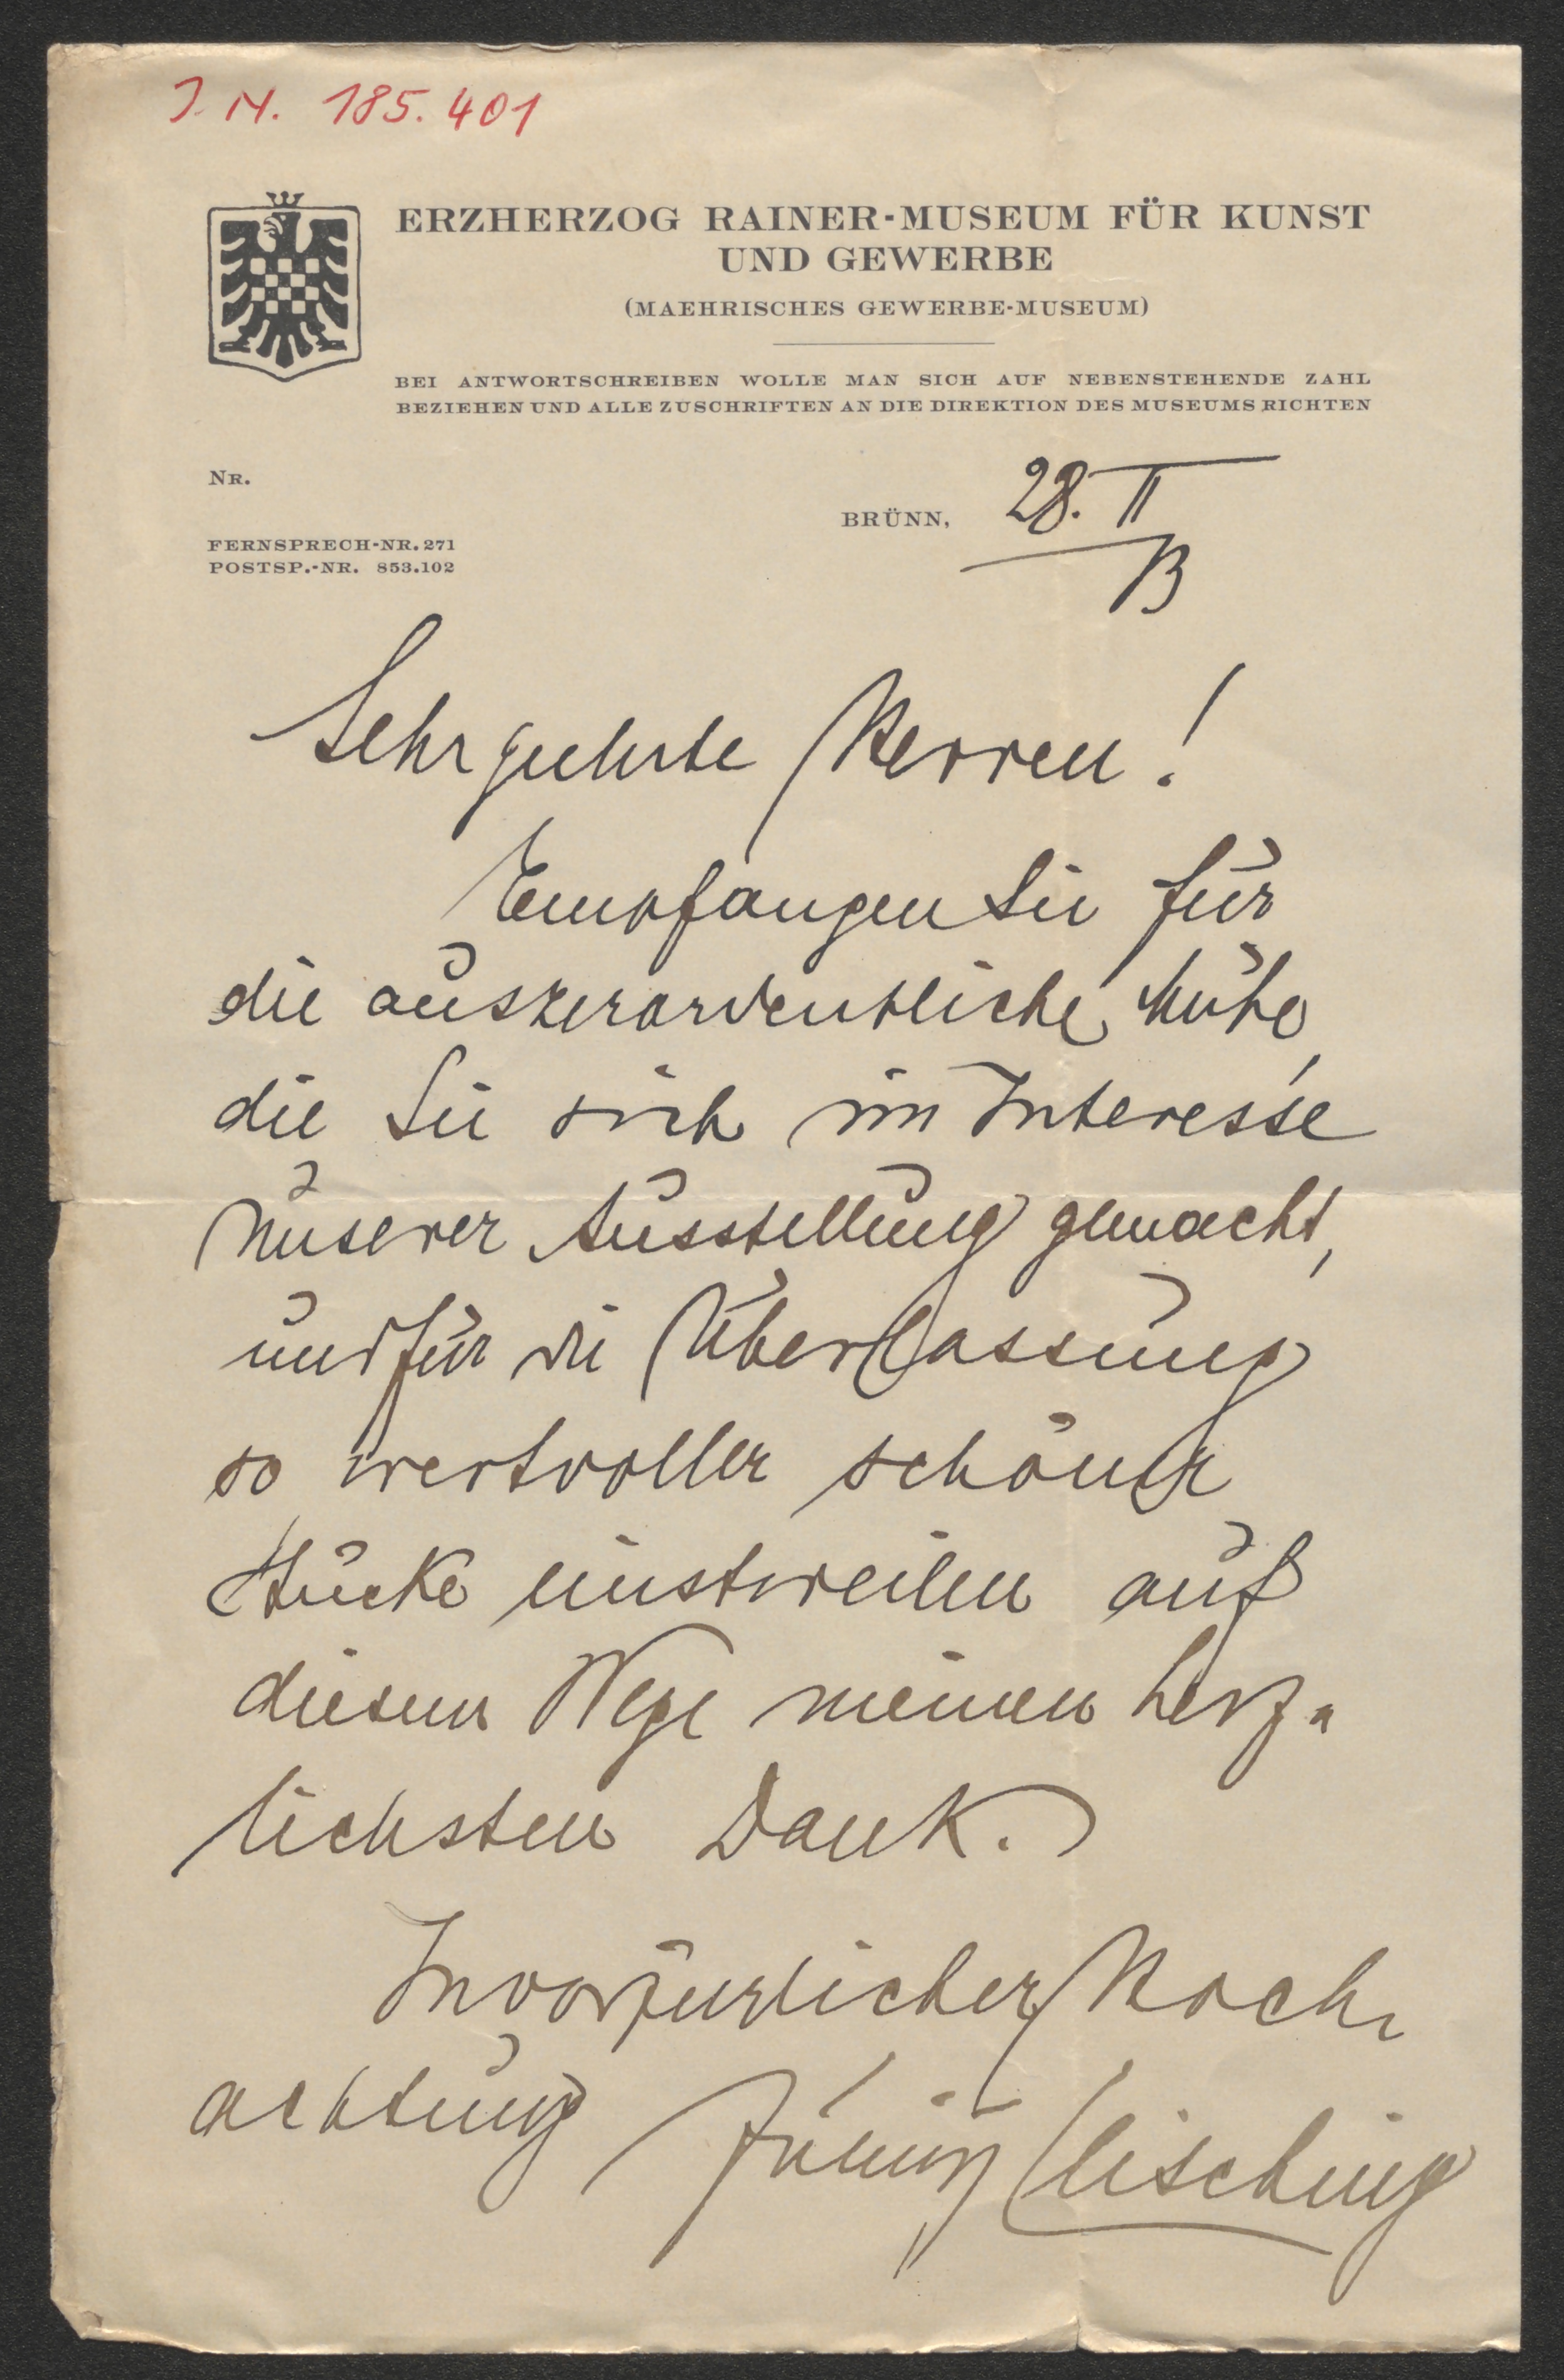 J. N. 185.401
ERZHERZOG RAINER-MUSEUM FÜR KUNST
UND GEWERBE
(MAEHRISCHES GEWERBE-MUSEUM)
BEI ANTWORTSCHREIBEN WOLLE MAN SICH AUF NEBENSTEHENDE ZAHL
BEZIEHEN UND ALLE ZUSCHRIFTEN AN DIE DIREKTION DES MUSEUMS RICHTEN
NR.
BRÜNN, 28. II
13
FERNSPRECH-NR. 271
POSTSP.-NR. 853.102
Sehr geehrte Herren!
Empfangen Sie für
die auszerordentliche Mühe,
die Sie sich im Interesse
unserer Ausstellung gemacht,
und für die Überlassung
so wertvoller schöner
Stücke einstweilen auf
diesem Wege meinen herz-
lichsten Dank.
In vorzüglicher Hoch-
achtung Julius Leisching